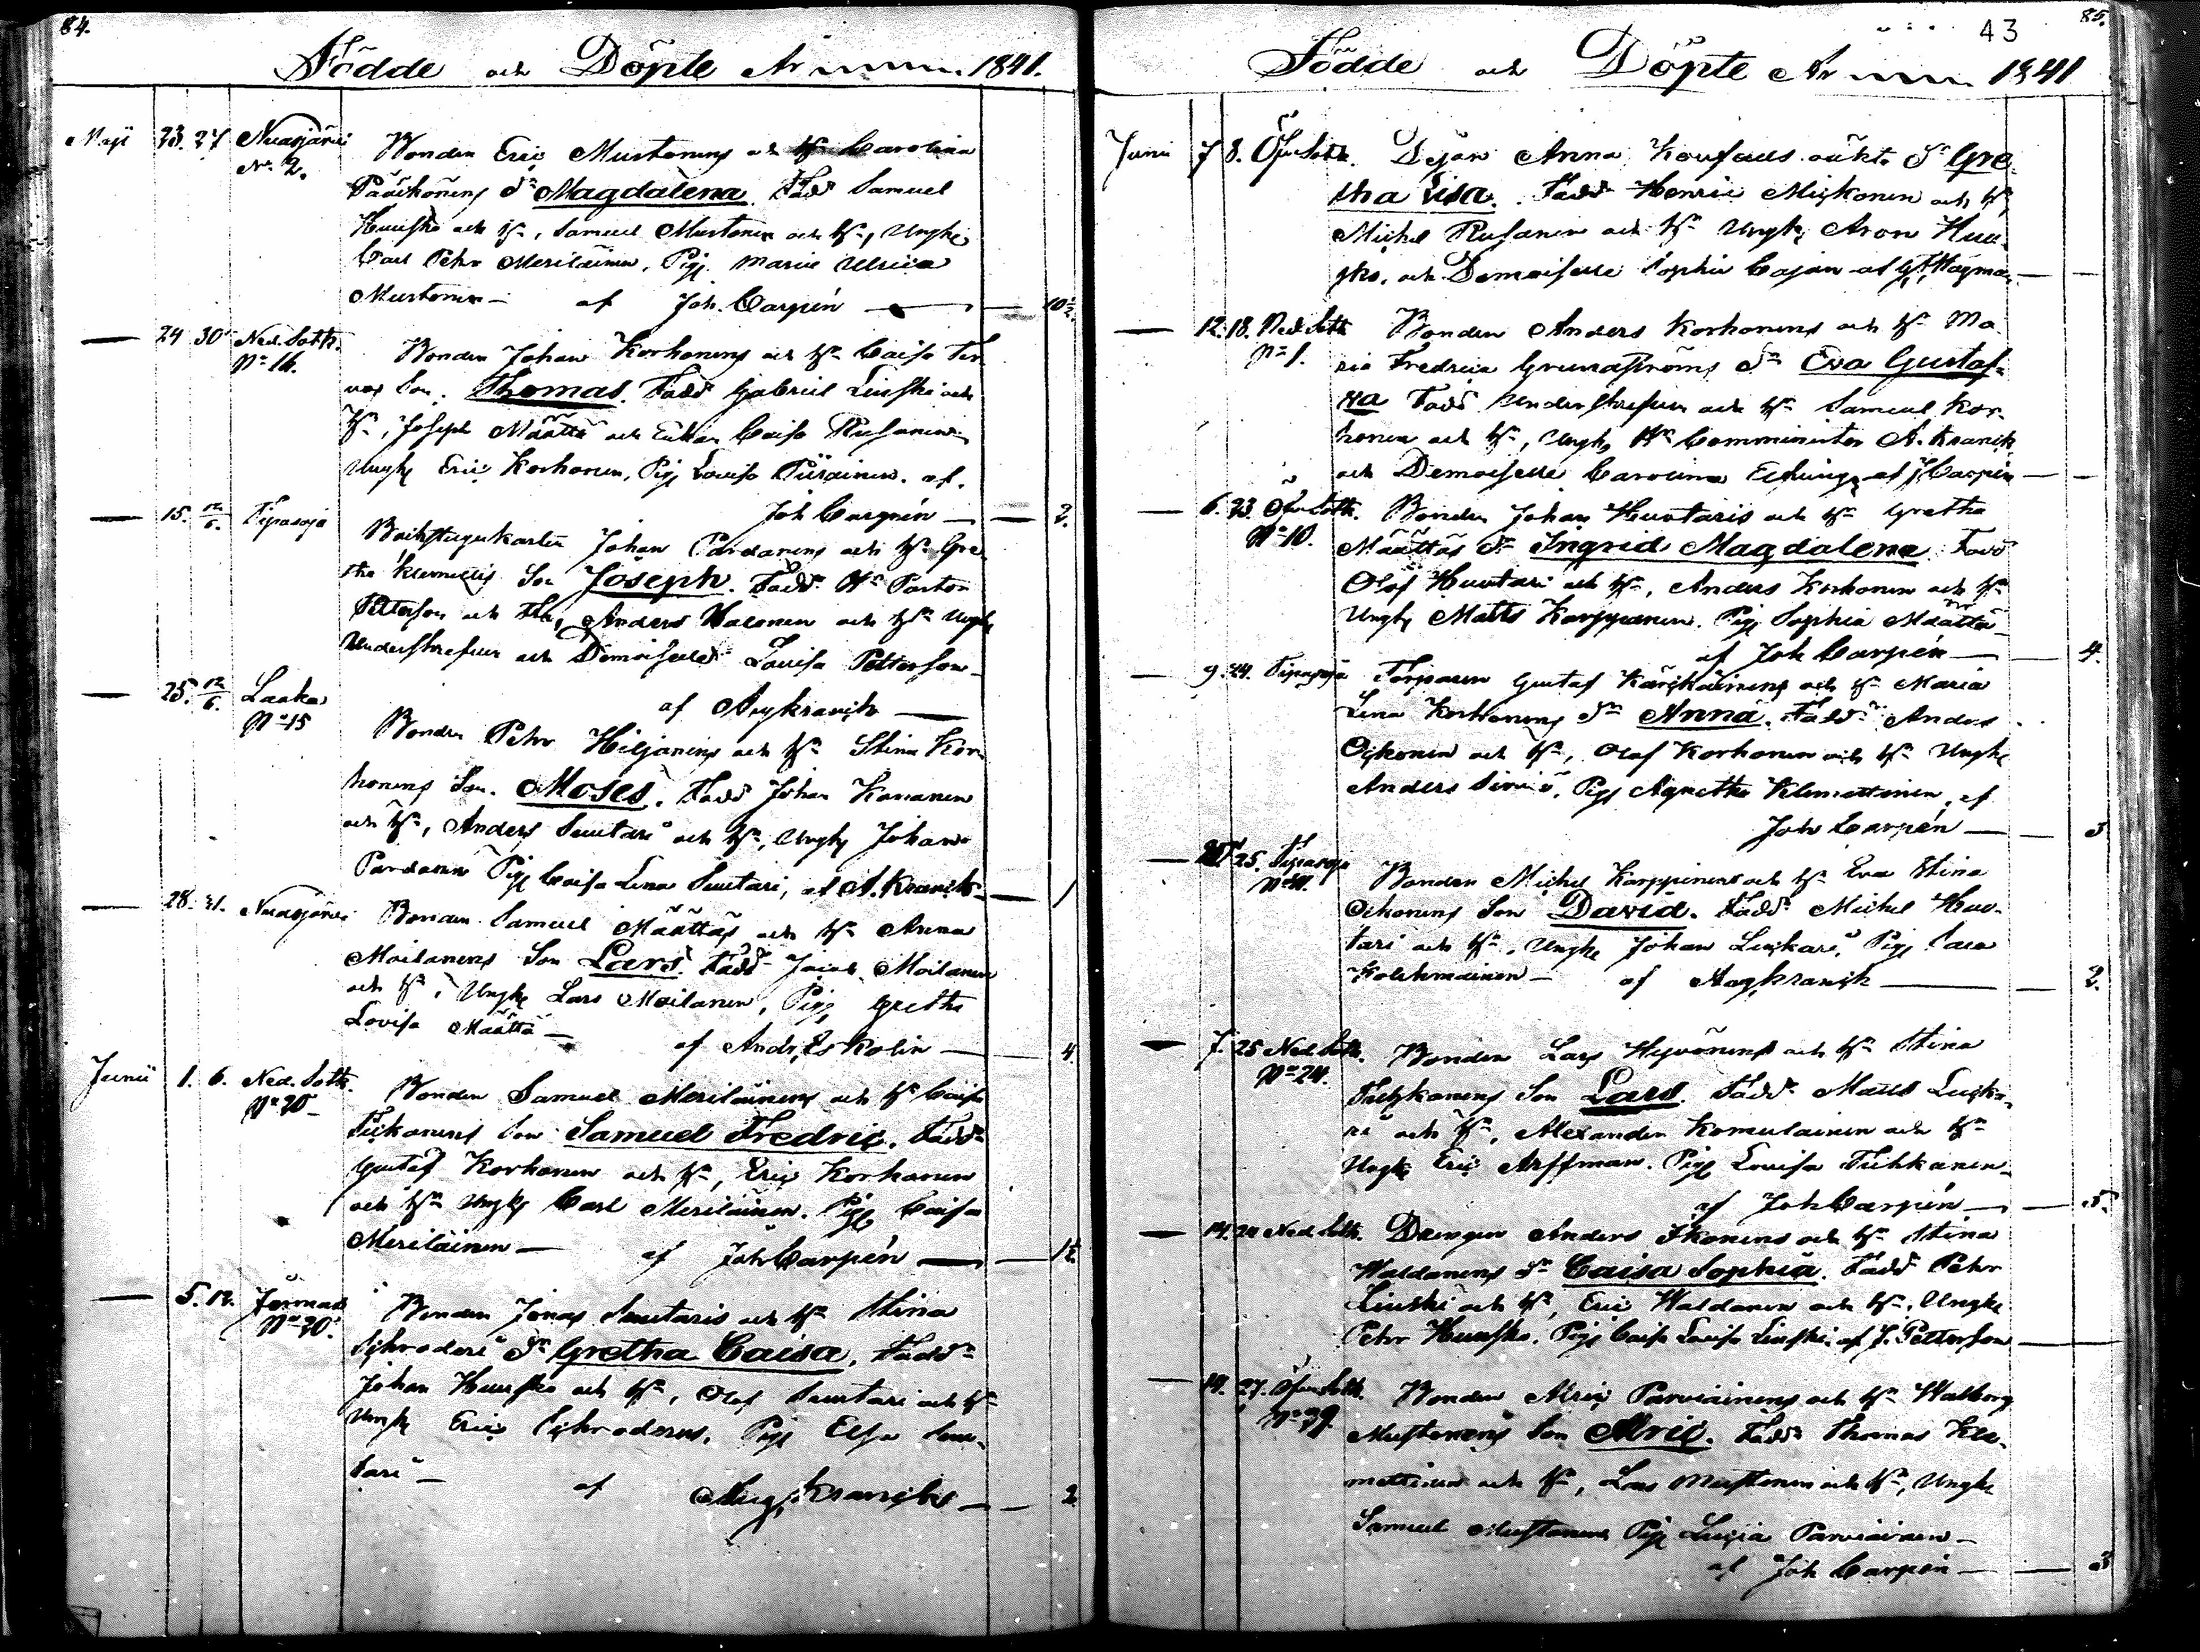 84.
Födde och Döpte År 1841.
Maji 23. 27 Nuasjärvi No 2.
Bonden Eric Mustonens och H. Carolina
Pääckönens Dr Magdalena. Fadd Samuel
Huusko och H., Samuel Mustonen och H., Yngl.
Carl Petr Meriläinen, Pig. Maria Ulrica
Mustonen — af Joh. Carpén — 10½.
— 24 30 Ned. Sotk. No 16.
Bonden Johan Korhonens och H. Caisa Ter-
vos Son. Thomas. Fadd Gabriel Liuski och
H., Joseph Määttä och Enkan Caisa Rusanen
Yngl. Eric Korhonen, Pig. Lovisa Piirainen. af.
Joh Carpén — 2.
— 15. 12/6. Tipasoja
Backstugukarlen Johan Pardanens och H. Gre-
tha Klemettis Son Joseph. Fadd. Hr Pastor
Petterson och Fru, Anders Halonen och H. Yngl.
Understrefver och Demoiselle Lovisa Petterson
af Aug Kranck —
— 25. 12/6. Laaka No 15
Bonden Petr Hiljanens och H. Stina Kor-
honens Son. Moses. Fadd Johan Kananen
och H., Anders Suutari och H., Yngl. Johan
Pardanen Pig. Caisa Lena Suutari, af A. Kranck — 1
— 28. 31. Nuasjärvi
Bonden Samuel Määttäs och H. Anna
Moilanens Son Lars. Fadd Jacob Moilanen
och H., Yngl. Lars Moilanen, Pig. Gretha
Lovisa Määttä —
af And. Eskolin — 4.
Junii 1. 6. Ned. Sotk. No 20
Bonden Samuel Meriläinens och H. Caisa
Tickanens Son Samuel Fredric. Fadd
Gustaf Korhonen och H., Eric Korhonen
och H. Yngl. Carl Meriläinen. Pig. Caisa
Meriläinen — af Joh Carpén — 1½
— 5. 12. Jormas No 20.
Bonden Jonas Suutaris och H. Stina
Schroderi Dr Gretha Caisa. Fadd
Johan Huusko och H., Olof Suutari och H.
Yngl. Eric Schroderus. Pig. Elsa Suu-
tari — af Aug. Kranck — 2
43
85.
Födde och Döpte År 1841
Junii 7 8. Öfver Sotk.
Dejan Anna Kousas oäkta Dr Gre-
tha Lisa. Fadd Henric Mickonen och H.,
Michel Rusanen och H. Yngl. Aron Huu-
sko, och Demoiselle Sophia Cajan af G. Hagman
— 12. 18. Ned Sotk No 1.
Bonden Anders Korhonens och H. Ma-
ria Fredrica Grundströms Dr Eva Gustaf-
va Fadd Understrefver och H. Samuel Kor-
honen och H., Yngl. Hr Comminister A. Kranck,
och Demoiselle Carolina af J. Carpén
— 6. 23. Öfver Sotk. No 10.
Bonden Johan Huotaris och H. Gretha
Määttäs Dr Ingrid Magdalena. Fadd
Olof Huotari och H., Anders Korhonen och H.
Yngl. Matts Karppanen. Pig. Sophia Määttä
af Joh Carpén — 4.
— 9. 24. Tipasoja
Torparen Gustaf Kärckäinens och H. Maria
Lena Korhonens Dr Anna. Fadd Anders
Ockonen och H., Olof Korhonen och H. Yngl.
Anders Sirviö, Pig. Agnetha Klemettinen, af
Joh Carpén — 3
— 25. Tipasoja
Bonden Michel Karppinens och H. Eva Stina
Ockonens Son David. Fadd. Michel Huo-
tari och H., Yngl. Johan Luckari, Pig. Caisa
Kolehmainen — af Aug Kranck — 2.
— 7. 25 Ned Sotk. No 24.
Bonden Lars Hyvönens och H. Stina
Tuhkanens Son Lars. Fadd. Matts Lucka-
ri och H., Alexander Komulainen och H.
Yngl. Eric Arffman. Pig. Lovisa Tuhkanen
af Joh Carpén — 5.
— 14. 24 Ned Sotk.
Drengen Anders Ikonens och H. Stina
Waldanens Dr Caisa Sophia. Fadd Petr
Liuski och H., Eric Waldanen och H. Yngl.
Petr Huusko. Pig. Caisa Lovisa Liuski. af J. Petterson
— 19. 27. Öfver Sotk. No 39.
Bonden Alric Parviainens och H. Walborg
Mustonens Son Alric. Fadd Thomas Kle-
mettinen och H., Lars Mustonen och H., Yngl.
Samuel Mustonen Pig. Lucia Parviainen —
af Joh Carpén — 3